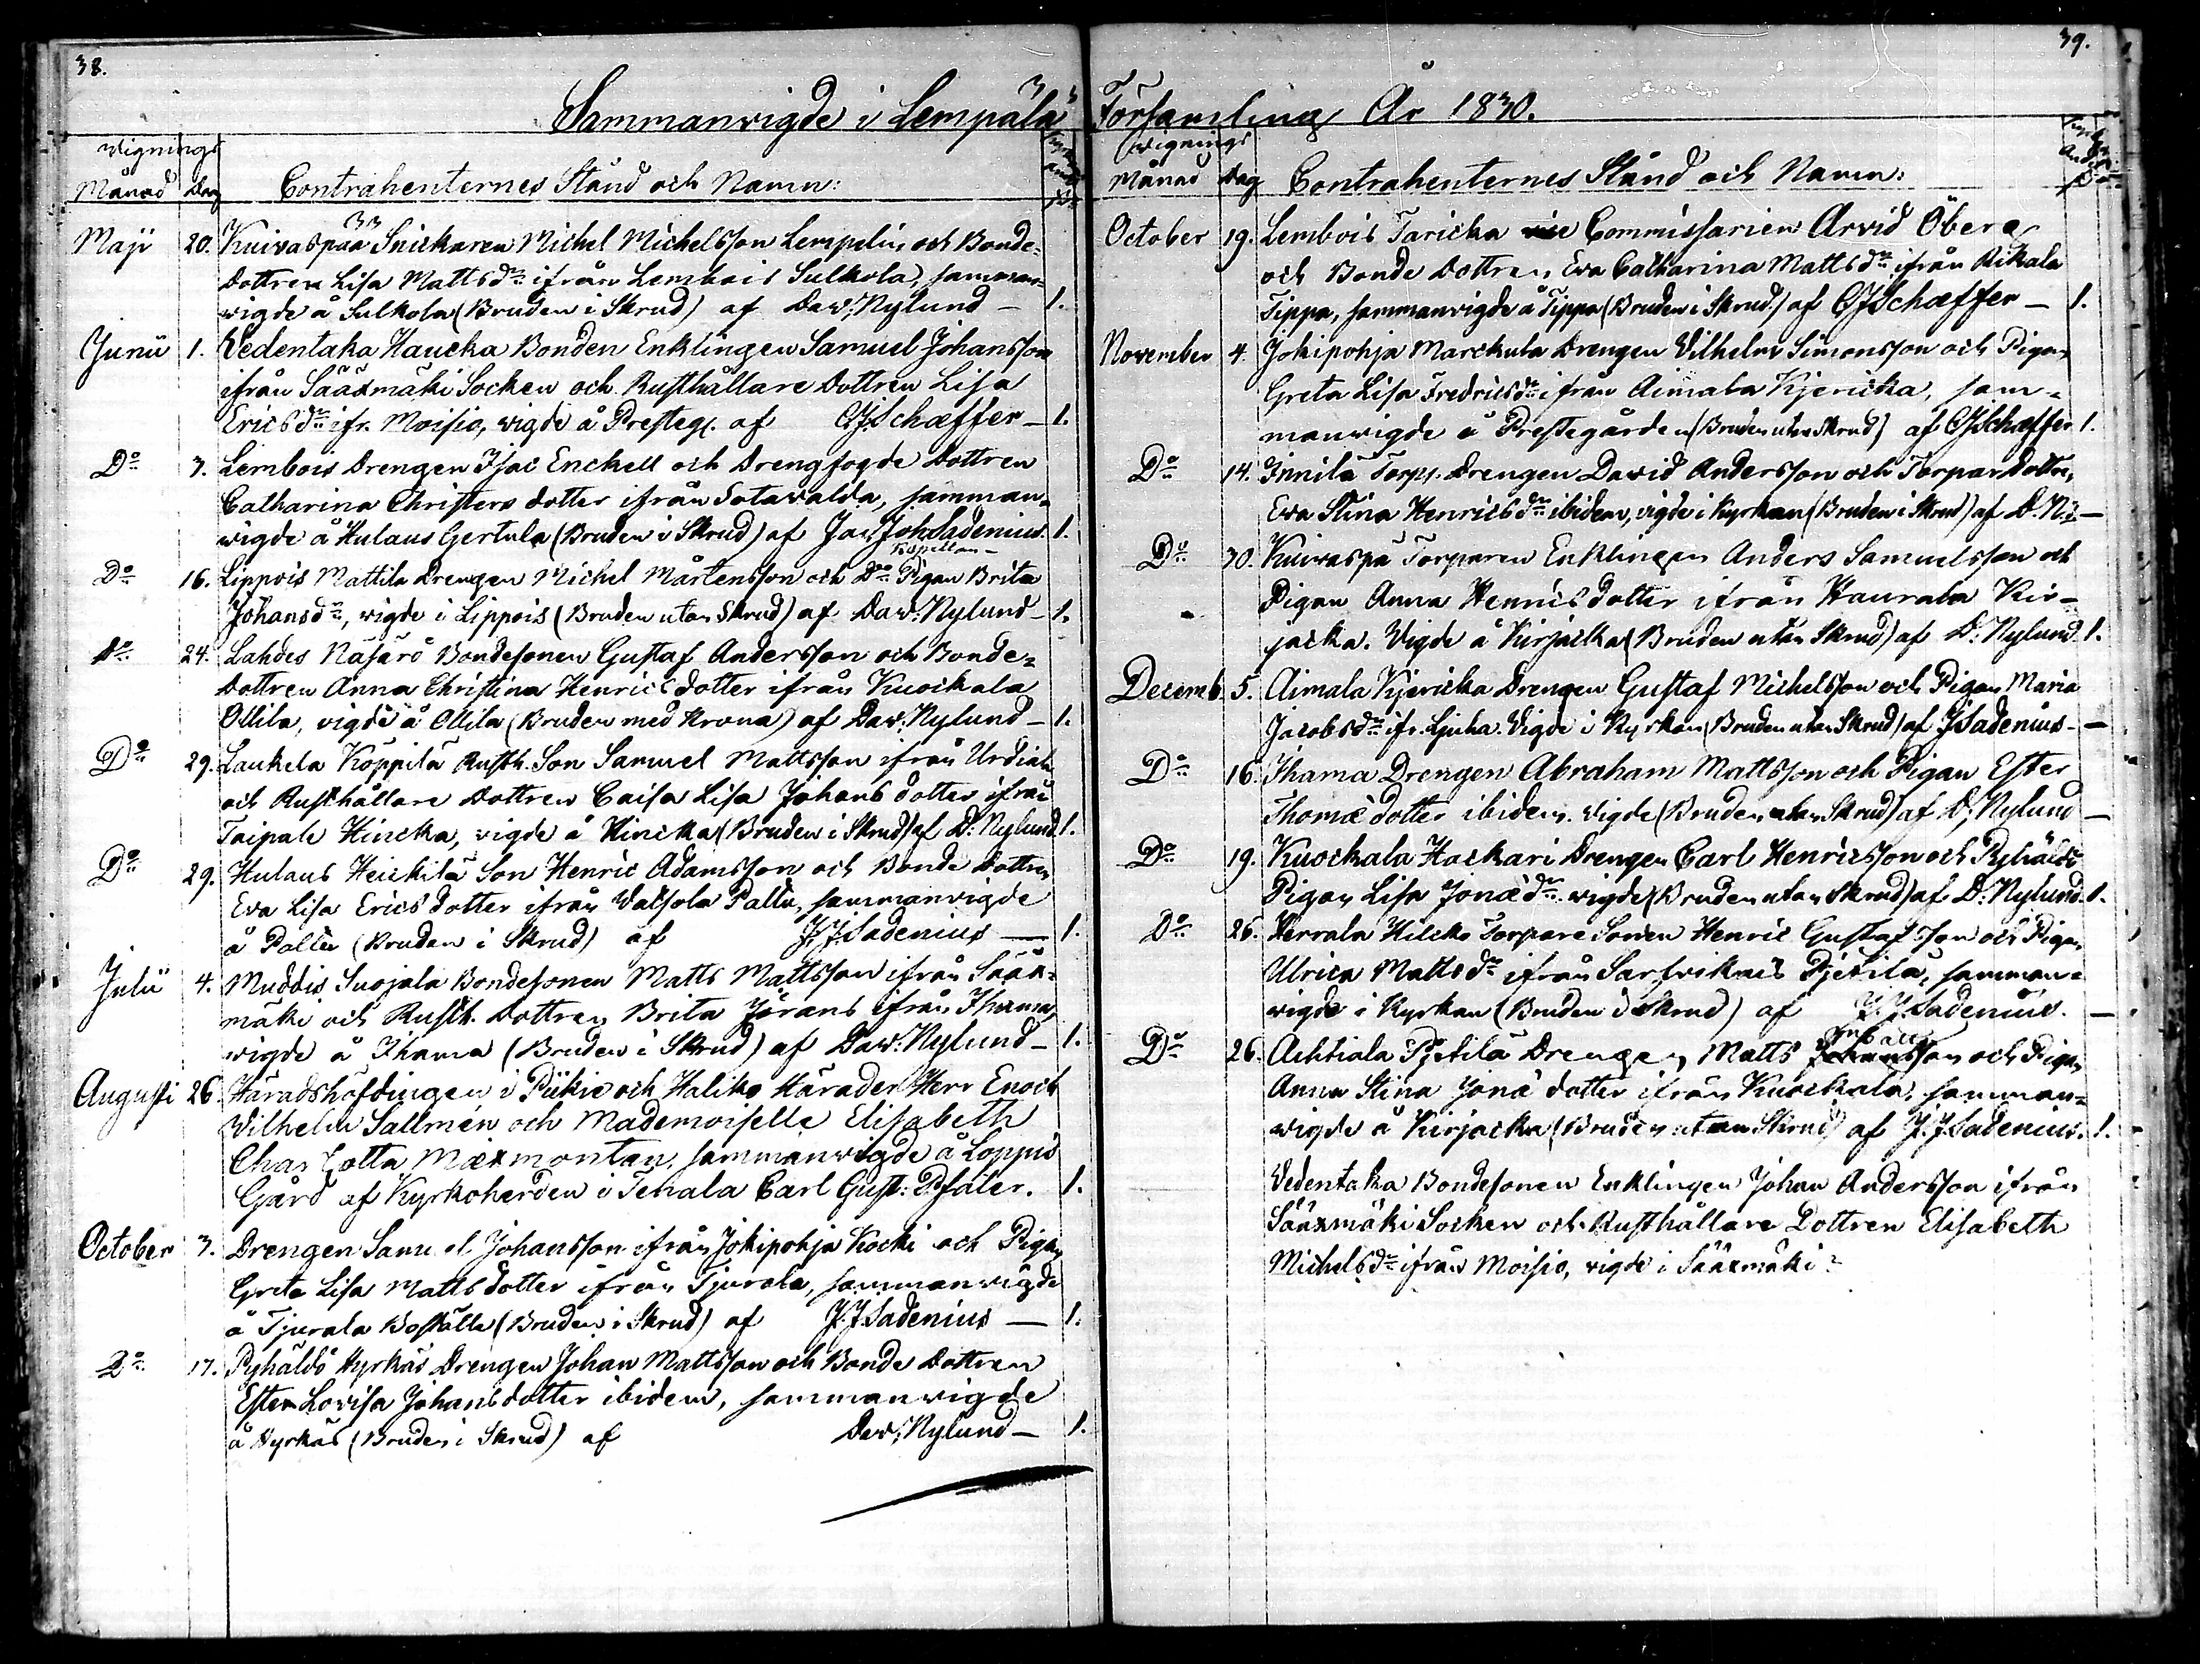 38.
Sammanvigde i Lempälä
Vignings
Månad Dag Contrahenternes Stånd och Namn:
Maji 20. Kuivaspää Snickaren Michel Michelsson Lempelin och Bonde-
Dottren Lisa Mattsdr ifrån Lembois Sulkola, samman-
vigde å Sulkola (Bruden i Skrud) af Dav: Nylund — 1.
Junii 1. Vedentaka Haucka Bonden Enklingen Samuel Johansson
ifrån Sääxmäki Socken och Rusthållare Dottren Lisa
Ericsdr ifr. Moisio, vigde å Presteg. af CJSchæffer — 1.
Do 3. Lembois Drengen Isac Enckell och Drengfogde Dottren
Catharina Christers dotter ifrån Sotavalda, samman-
vigde å Hulaus Gertula (Bruden i Skrud) af Jac. Joh Sadenius. 1.
Kapellan
Do 16. Lippois Mattila Drengen Michel Mårtensson och Do Pigan Brita
Johansdr, vigde i Lippois (Bruden utan Skrud) af Dav: Nylund — 1.
Do 24. Lahdes Näsärö Bondesonen Gustaf Andersson och Bonde-
Dottren Anna Christina Henricsdotter ifrån Kuockala
Ollila, vigde å Ollila (Bruden med Krona) af Dav: Nylund — 1.
Do 29. Laukela Köppilä Rusth. Son Samuel Mattsson ifrån Urdiala
och Rusthållare Dottren Caisa Lisa Johansdotter ifrån
Taipale Hincka, vigde å Hincka (Bruden i Skrud) af D: Nylund 1.
Do 29. Hulaus Heickilä Son Henric Adamsson och Bonde Dottren
Eva Lisa Ericsdotter ifrån Valsola Palte, sammanvigde
å Palte (Bruden i Skrud) af J.J. Sadenius — 1.
Julii 4. Muddis Suojala Bondesonen Matts Mattsson ifrån Sääx-
mäki och Rusth. Dottren Brita Jörans ifrån Ihama,
vigde å Ihama (Bruden i Skrud) af Dav: Nylund — 1.
Augusti 26 Häradshöfdingen i Pikie och Haliko Härader Herr Enoch
Vilhelm Sallmén och Mademoiselle Elisabeth
Charlotta Mæxmontan, sammanvigde å Loppis
Gård af Kyrkoherden i Tenala Carl Gust: Pfaler. 1.
October 3. Drengen Samuel Johansson ifrån Jokipohja Kocki och Pigan
Greta Lisa Mattsdotter ifrån Tjurala, sammanvigde
å Tjurala Boställe (Bruden i Skrud) af J.J. Sadenius — 1.
Do 17. Pyhäldö Hyrkäs Drengen Johan Mattsson och Bonde Dottren
Ester Lovisa Johansdotter ibidem, sammanvigde
å Hyrkäs (Bruden i Skrud) af Dav: Nylund — 1.
39.
Församling År 1830.
Vignings
Månad Dag Contrahenternes Stånd och Namn:
October 19. Lembois Taricka vice Commissarien Arvid Öberg
och Bonde Dottren Eva Catharina Mattsdr ifrån Rikala
Tippa, sammanvigde å Tippa (Bruden i Skrud) af CJSchæffer — 1.
November 4. Jokipohja Marckula Drengen Vilhelm Simonsson och Pigan
Greta Lisa Fredricsdr ifrån Aimala Kjericka, sam-
manvigde å Prestegården (Bruden utan Skrud) af CJSchæffer 1.
Do 14. Innilä Torp. Drengen David Andersson och Torpardottr.
Eva Stina Henricsdr ibidem, vigde i Kyrkan (Bruden i Skrud) af D. N. —
Do 30. Kuivaspä Torparen Enklingen Anders Samuelsson och
Pigan Anna Henricsdotter ifrån Haurala Kir-
jacka. Vigde å Kirjacka (Bruden utan Skrud) af D. Nylund. 1.
Decemb. 5. Aimala Kjericka Drengen Gustaf Michelsson och Pigan Maria
Jacobsdr ifr. Ljuha. Vigde i Kyrkan (Bruden utan Skrud) af JSadenius —
Do 16. Ihama Drengen Abraham Mattsson och Pigan Ester
Thomæ dotter ibidem. Vigde (Bruden utan Skrud) af D; Nylund —
Do 19. Kuockala Hackari Drengen Carl Henricsson och Pyhäldö
Pigan Lisa Jonædr. vigde (Bruden utan Skrud) af D: Nylund. 1.
Do 26. Herrala Hilcko Torpare Sonen Henric Gustafsson och Pigan
Ulrica Mattsdr ifrån Sarfviknis Pjetilä, samman-
vigde i Kyrkan (Bruden i Skrud) af J.J. Sadenius. —
Do 26. Achtiala Pjetilä Drengen Matts Johansson och Pigan
Anna Stina Jonædotter ifrån Kuockala, samman-
vigde å Kirjacka (Bruden utan Skrud) af J.J. Sadenius. 1.
Vedentaka Bondesonen Enklingen Johan Andersson ifrån
Sääxmäki Socken och Rusthållare Dottren Elisabeth
Michelsdr ifrån Moisio, vigde i Sääxmäki